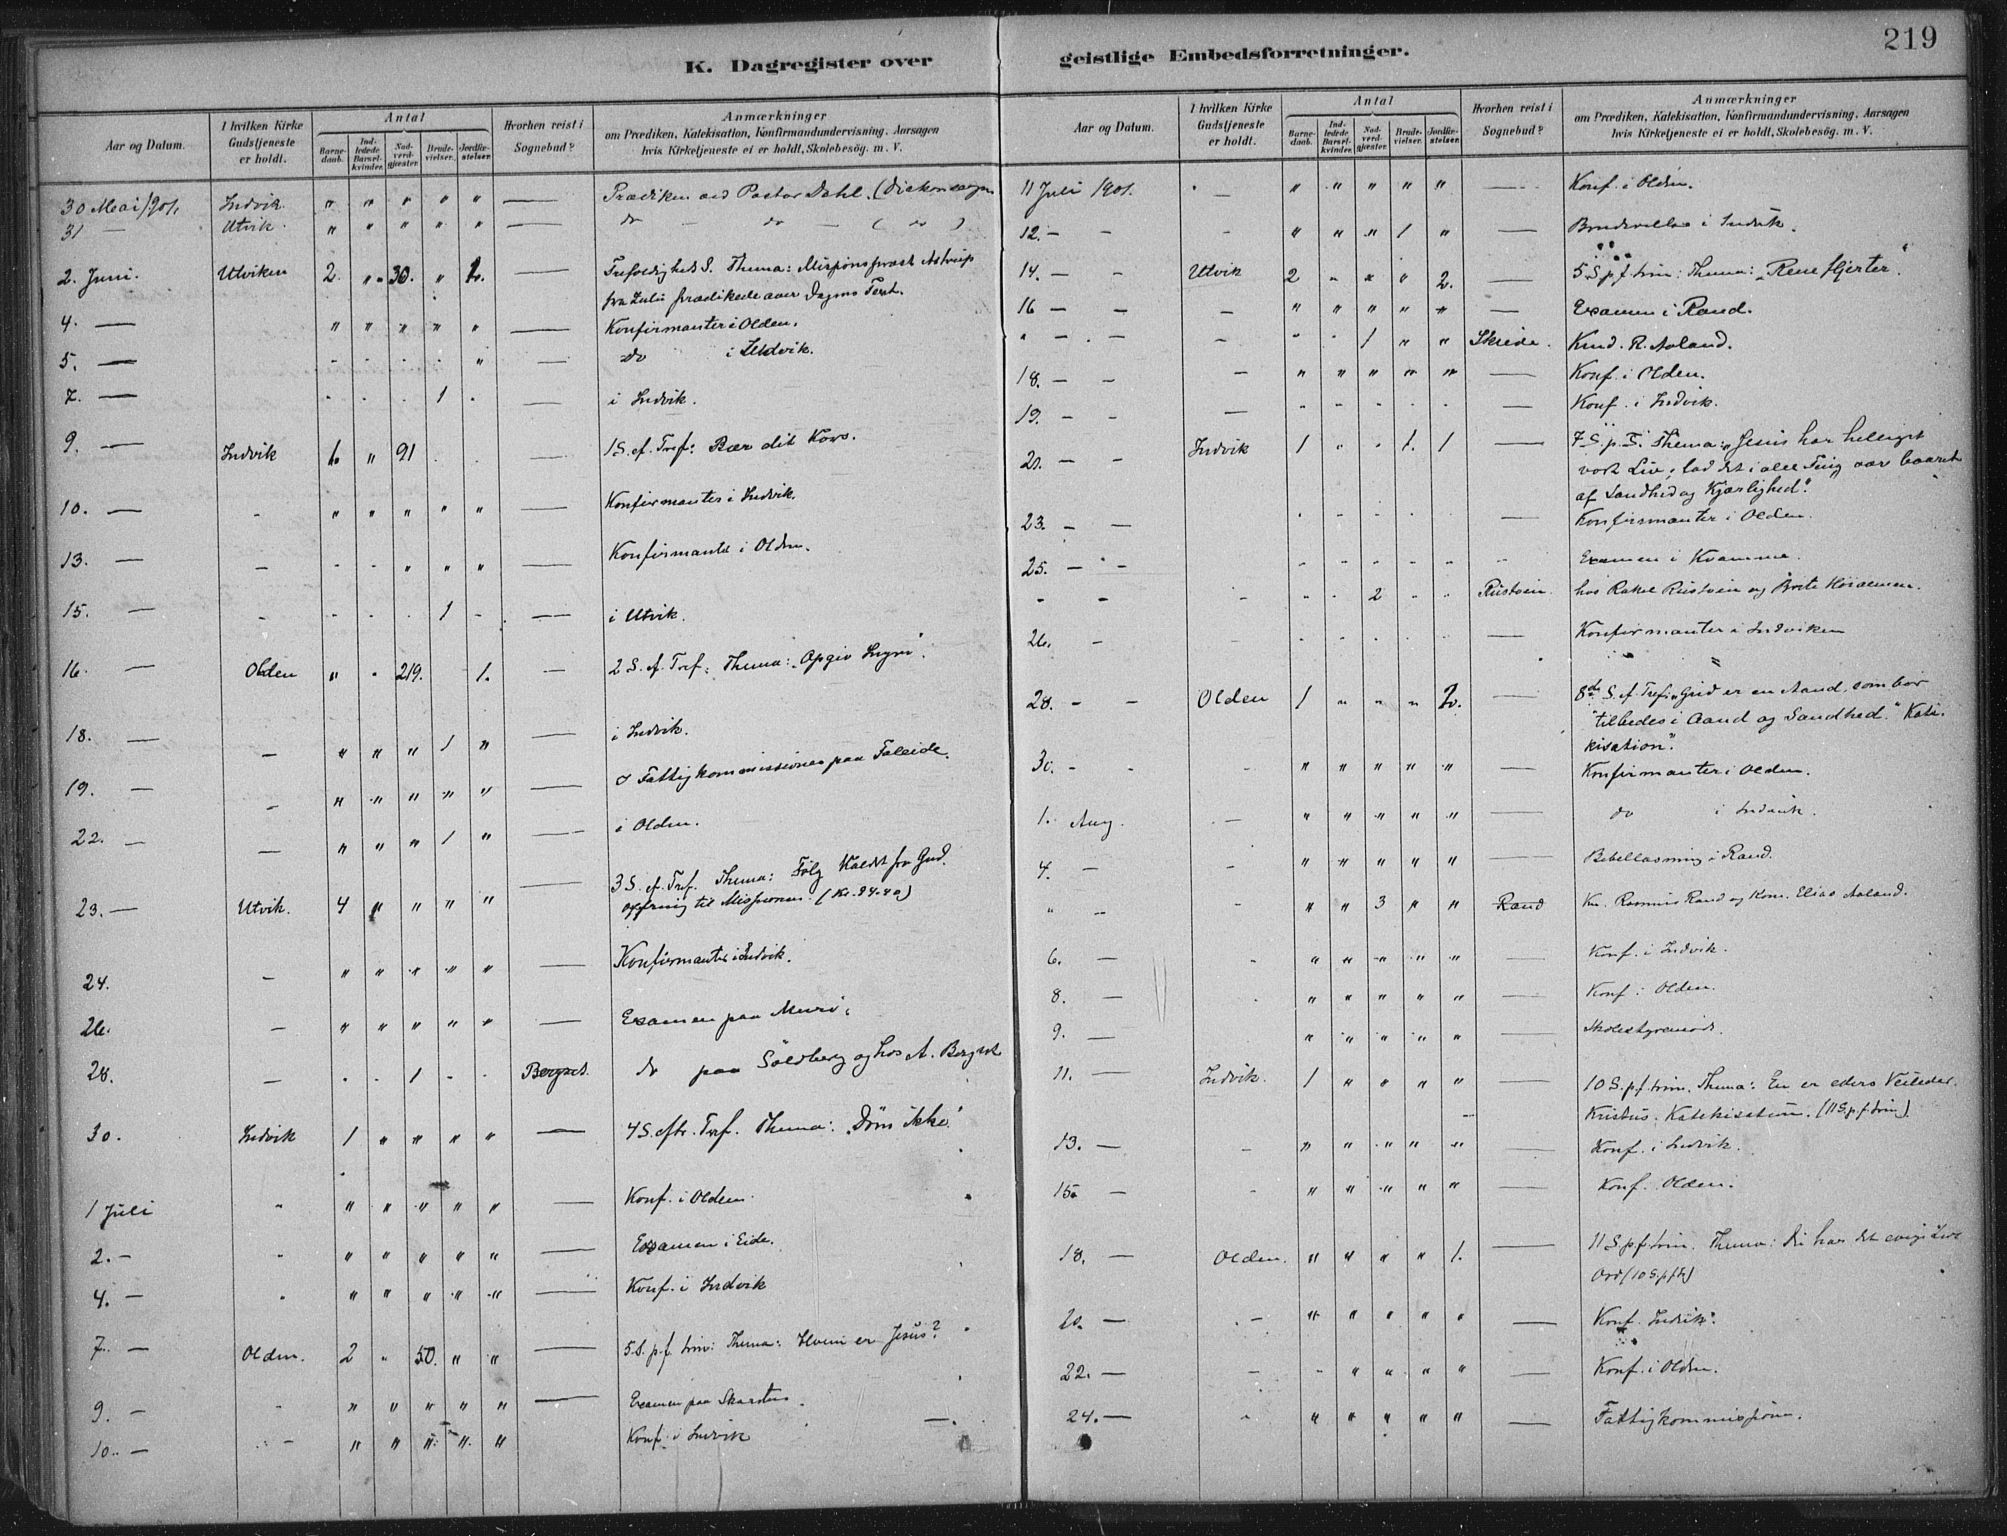 219
K. Dagregister over geistlige Embedsforretninger.
Aar og Datum. I hvilken Kirke Gudstjeneste er holdt. Antal Barnedaab. Indledede Barselkvinder. Nadverdgjæster. Brudevielser. Jordfæstelser. Hvorhen reist i Sognebud? Anmærkninger om Prædiken, Katekisation, Konfirmandundervisning, Aarsagen hvis Kirketjeneste ei er holdt, Skolebesøg. m. V.
30 Mai 1901. Indvik " " " " " — Prædiken ved Pastor Dahl. (Diakonsagen
31 — Utvik. " " " " " — do — do — ( do )
2. Juni. Utviken 2. " 30. " 2. — Trefoldigheds S. Thema: Missionsprest Astrup
fra Zulu prædikede over Dagens Text.
4. — " " " " " — Konfirmanter i Olden.
5. — " " " " " — do i Indvik.
7. — " " " 1 " — i Indvik.
9. — Indvik 6. " 91 " " — 1 S. ef. Tref: Bær dit Kors.
10. — " " " " " — Konfirmanter i Indvik.
13. — — " " " " " — Konfirmanter i Olden.
15. — — " " " 1 " — i Utvik.
16. — Olden " " 219. 1. — 2 S. ef. Tref: Thema:
18. — — " " " 1 " — i Indvik.
19. — — " " " " " — Fattigkommissionen paa Faleide.
22. — — " " " 1 " — i Olden.
23. — Utvik. 4 " " " " — 3 S. ef. Tref. Thema: Følg Kaldet fra Gud.
Ofring til Missionen. (Kr. 24.40)
24. — " " " " " — Konfirmanter i Indvik.
26. — " " " " " — Examen paa Muri.
28. — " " 1 " " Bergset. do paa Söldberg og hos A. Bergset
30. Indvik 1 " " " " — 4 S. eftr. Tref. Thema: "Døm ikke"
1 Juli " " " " " " — Konf. i Olden.
2. — " " " " " " — Examen i Eide.
4. — " " " " " " — Konf. i Indvik
7. — Olden. 2 " 50. " " — 5 S. p. f. trin: Thema: Hvem er Jesus?
9. — " " " " " " — Examen paa Skarsten.
10. — — " " " " " Konf. i Indvik
Aar og Datum. I hvilken Kirke Gudstjeneste er holdt. Antal Barnedaab. Indledede Barselkvinder. Nadverdgjæster. Brudevielser. Jordfæstelser. Hvorhen reist i Sognebud? Anmærkninger om Prædiken, Katekisation, Konfirmandundervisning, Aarsagen hvis Kirketjeneste ei er holdt, Skolebesøg. m. V.
11 Juli 1901. — " " " " " — Konf. i Olden.
12. — — " " " 1 " — Brudevielse i Indvik.
14. — — Utvik 2 " " " 2. — 5 S. p. f. trin: Thema: "Rene Hjerter."
16 — — — " " " " " — Examen i Rand.
" — — — " " 1 " " Skreide. Knud. R. Aaland.
18. — — — " " " " " — Konf. i Olden.
19. — — — " " " " " — Konf. i Indvik.
21. — — Indvik 1 " " 1. 1 — 7 S. p. T. Thema: "Jesus har helliget
vort Liv, lad det i alle Ting være baaret
af Sandhed og Kjærlighed".
23. — — " " " " — Konfirmanter i Olden.
25. — — " " " " " " Examen i Kvamme.
" — — " " 2 " " Rustøen. hos Rakel Rustøen og
26. — — " " " " " — Konfirmanter i Indviken
28. — — Olden 1 " " " 2. — 8de S. ef. Tref: "Gud er en Aand, som bør
"tilbedes i Aand og Sandhed." Kate-
kisation".
30. — — " " " " " — Konfirmanter i Olden.
1. Aug. — " " " " " — do i Indvik.
4. — — " " " " " — Bibellæsning i Rand.
" — — " " 3 " " Rand Kn. Rasmus Rand og Kone. Elias Aaland.
6. — " " " " " " — Konf. i Indvik.
8. — " " " " " — Konf. i Olden.
9. — " " " " " — Skolestyremøde.
11. — Indvik. 1 " " " " — 10 S. p. f. trin. Thema: En er eders Veileder
Kristus. Katekisation. (11 S. p. f. trin)
13. — — " " " " " Konf. i Indvik.
15. — " " " " " " — Konf. Olden.
18. — Olden. " " " " 1. — 11 S. p. f. trin. Thema: Du har det evige Livs
Ord (10 S. p. f. tr)
20. — — " " " " " — Konf. Indvik.
22. — — " " " " " — Konf. i Olden.
24. — " " " " " " — Fattigkommission.